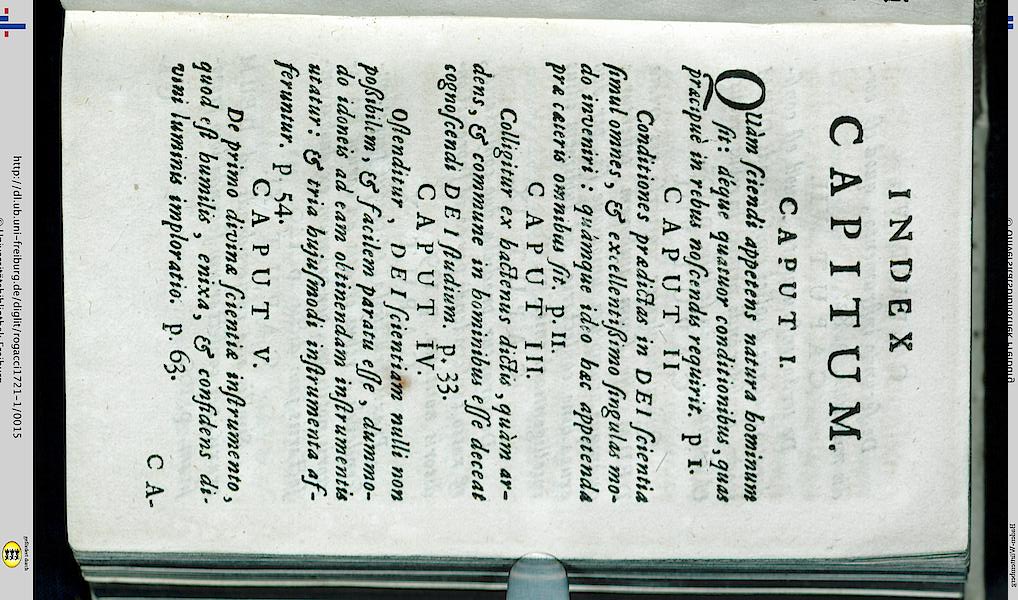 INDEX
CAPITUM.
CAPUT I.
QUàm ſciendi appetens natura hominum
ſit: déque quatuor conditionibus, quas
præcipuè in rebus noſcendis requirit. p 1.
CAPUT II
Conditiones prædictas in DEI ſcientia
ſimul omnes, & excellentiſſimo ſingulas mo-
do inveniri: quámque ideo hac appetenda
præ cæteris omnibus ſit. p. II.
CAPUT III.
Colligitur ex hactenus dictis, quàm ar-
dens, & commune in hominibus eſſe deceat
cognoſcendi DEI ſtudium. p. 33.
CAPUT IV.
Oſtenditur, DEI ſcientiam nulli non
poſſibilem, & facilem paratu eſſe, dummo-
do idoneis ad eam obtinendam inſtrumentis
utatur: & tria hujuſmodi inſtrumenta af-
feruntur. p 54.
CAPUT V.
De primo divinæ ſcientiæ inſtrumento,
quod eſt humilis, enixa, & confidens di-
vini luminis imploratio. p. 63.
CA-
http://dl.ub.uni-freiburg.de/diglit/rogacci1721-1/0015
© Universitätsbibliothek Freiburg
gefördert durch